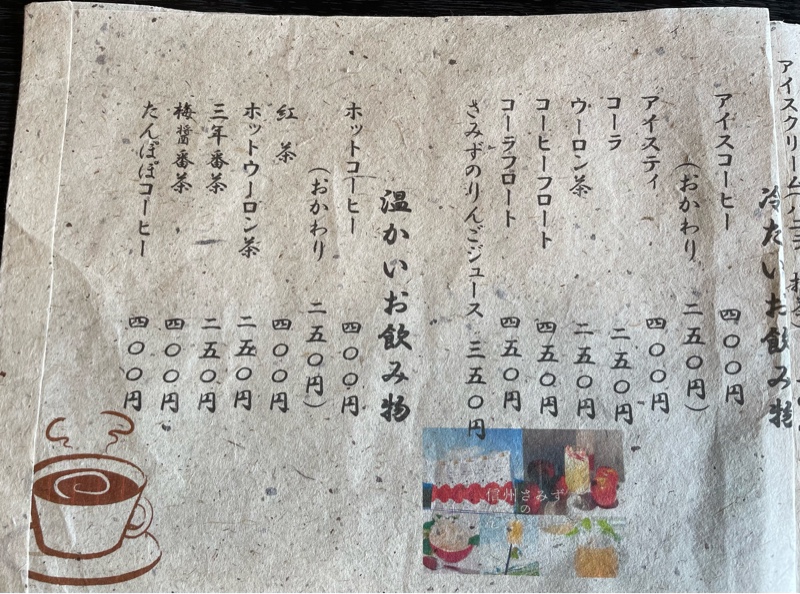 アイスクリーム(バニラ
冷たいお飲み物
アイスコーヒー 四〇〇円
(おかわり 二五〇円)
アイスティ 四〇〇円
コーラ 二五〇円
ウーロン茶 二五〇円
コーヒーフロート 四五〇円
コーラフロート 四五〇円
さみずのりんごジュース 三五〇円
信州さみず
の
温かいお飲み物
ホットコーヒー 四〇〇円
(おかわり 二五〇円)
紅茶 四〇〇円
ホットウーロン茶 二五〇円
三年番茶 二五〇円
梅醤番茶 四〇〇円
たんぽぽコーヒー 四〇〇円